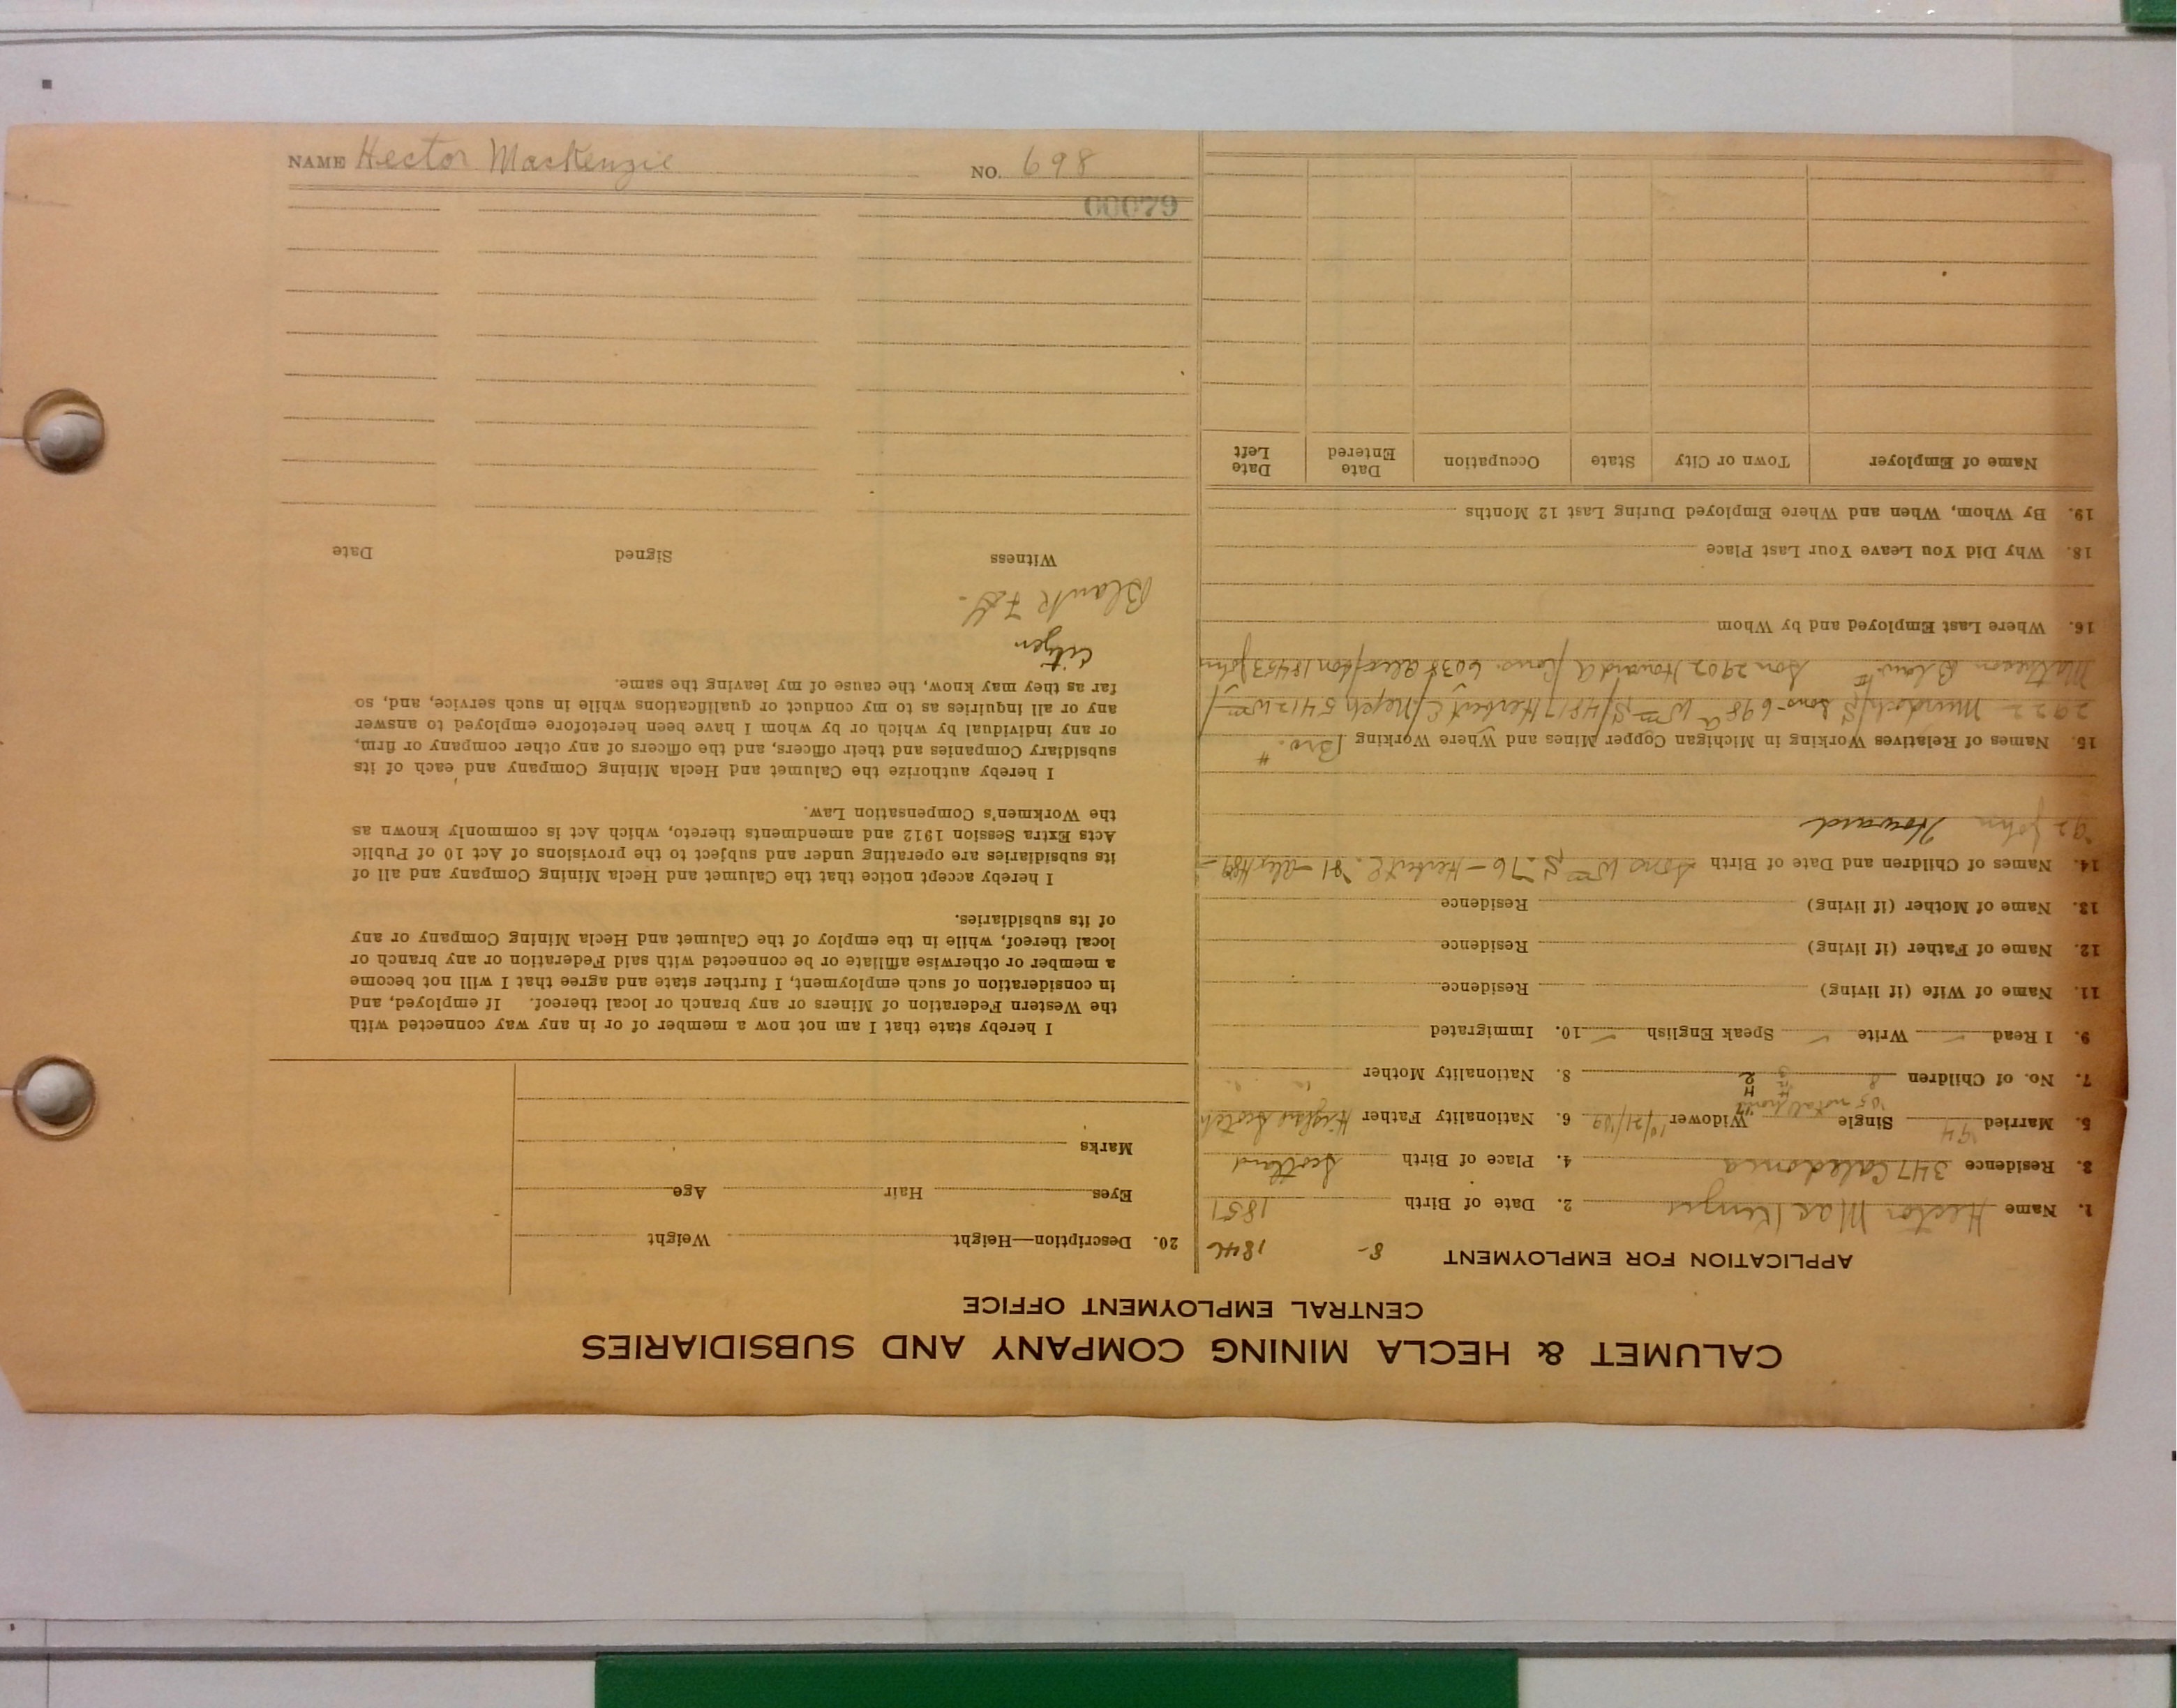 NAME Hector MacKenzie NO. 698
00079
CALUMET & HECLA MINING COMPANY AND SUBSIDIARIES
CENTRAL EMPLOYMENT OFFICE
APPLICATION FOR EMPLOYMENT 8- 1846
1. Name Hector MacKenzie 2. Date of Birth 1851
3. Residence 347 Caledonia 4. Place of Birth Scotland
5. Married '74 Single Widower 10/21/'09 6. Nationality Father Scotch
'05
7. No. of Children 8 8. Nationality Mother
9. I Read ✓ Write ✓ Speak English ✓ 10. Immigrated
11. Name of Wife (if living) Residence
12. Name of Father (if living) Residence
13. Name of Mother (if living) Residence
14. Names of Children and Date of Birth Sons Wm S. '76 - Herbert C. '81 - Alex H
'92 John Howard
15. Names of Relatives Working in Michigan Copper Mines and Where Working Bro. #
2922 Murdoch / Sons - 698 a Wm S / 4817 Herbert C / Neph 5412 Wm /
Son 2902 Howard A / 6038 Alex / son 18453 John
16. Where Last Employed and by Whom
18. Why Did You Leave Your Last Place
19. By Whom, When and Where Employed During Last 12 Months
Name of Employer Town or City State Occupation Date Entered Date Left
20. Description—Height Weight
Eyes Hair Age
Marks
I hereby state that I am not now a member of or in any way connected with
the Western Federation of Miners or any branch or local thereof. If employed, and
in consideration of such employment, I further state and agree that I will not become
a member or otherwise affiliate or be connected with said Federation or any branch or
local thereof, while in the employ of the Calumet and Hecla Mining Company or any
of its subsidiaries.
I hereby accept notice that the Calumet and Hecla Mining Company and all of
its subsidiaries are operating under and subject to the provisions of Act 10 of Public
Acts Extra Session 1912 and amendments thereto, which Act is commonly known as
the Workmen's Compensation Law.
I hereby authorize the Calumet and Hecla Mining Company and each of its
subsidiary Companies and their officers, and the officers of any other company or firm,
or any individual by which or by whom I have been heretofore employed to answer
any or all inquiries as to my conduct or qualifications while in such service, and, so
far as they may know, the cause of my leaving the same.
Citizen
Blank
Witness Signed Date